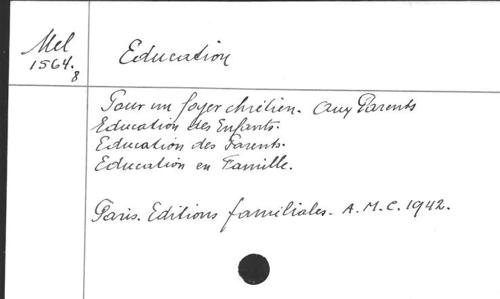 Mel
1564.
8
Education
Pour un foyer chrétien. Aux Parents
Education des Enfants.
Education des Parents.
Education en Famille.
Paris. Editions familiales. A.M.C. 1942.